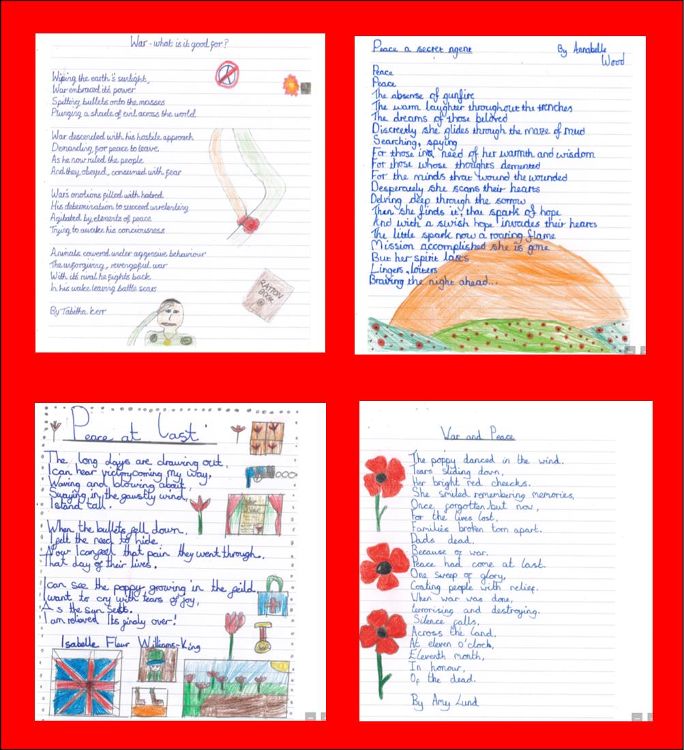 War - what is it good for?
Wiping the earth's sunlight,
War embraced its power
Spitting bullets onto the masses
Plunging a shade of evil across the world
War descended with his hostile approach
Demanding, for peace to leave.
As he now ruled the people
And they obeyed, consumed with fear
War's emotions filled with hatred
His determination to succeed unrelenting
Agitated by elements of peace
Trying to awake his conciousness
Animals cowered under aggresive behaviour
The unforgiving, revengeful war
With its rival he fights back
In his wake leaving battle scars
RATION BOOK
By Tabitha Kerr
Peace a secret agent
By Annabelle
Wood
Peace
Peace
The absense of gunfire
The warm laughter throughout the trenches
The dreams of those beloved
Discreetly she glides through the maze of mud
Searching, spying
For those in need of her warmth and wisdom
For those whose thoughts demented
For the minds that wound the wounded
Desperately she scans their hearts
Delving deep through the sorrow
Then she finds it, that spark of hope
And with a swish hope invades their hearts
The little spark now a roaring flame
Mission accomplished she is gone
But her spirit lasts
Lingers, loiters
Braving the night ahead...
Peace at last
The long days are drawing out,
I can hear victory coming my way,
Waving and blowing about,
Swaying in the gaustly wind,
I stand tall.
When the bullets fell down
I felt the need to hide.
Now I can feel that pain they went through.
That day of their lives.
I can see the poppy growing in the feild
I want to cry with tears of joy,
As the sun sets.
I am relieved Its finaly over!
Isabelle Fleur Williams-King
War and Peace
The poppy danced in the wind.
Tears sliding down,
Her bright red cheecks.
She smiled remembering memories,
Once forgotten but now,
For the lives lost,
Families broken torn apart.
Dads dead.
Because of war.
Peace had come at last.
One swoop of glory,
Coating people with relief.
When war was done,
Terrorising and destroying.
Silence falls,
Across the land.
At eleven o'clock,
Eleventh month,
In honour,
Of the dead.
By Amy Lund